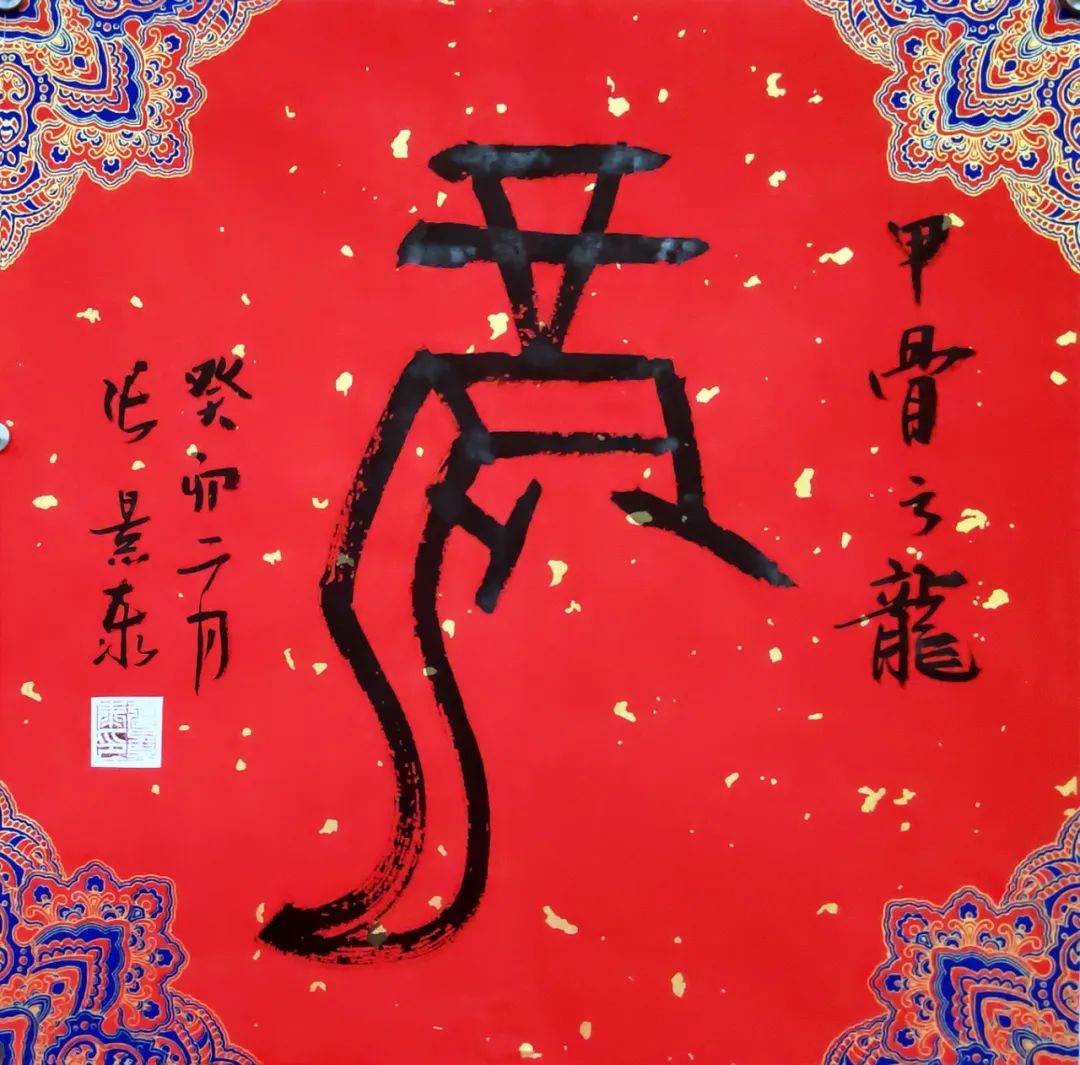 龍
甲骨之龍
癸卯二月
张景东